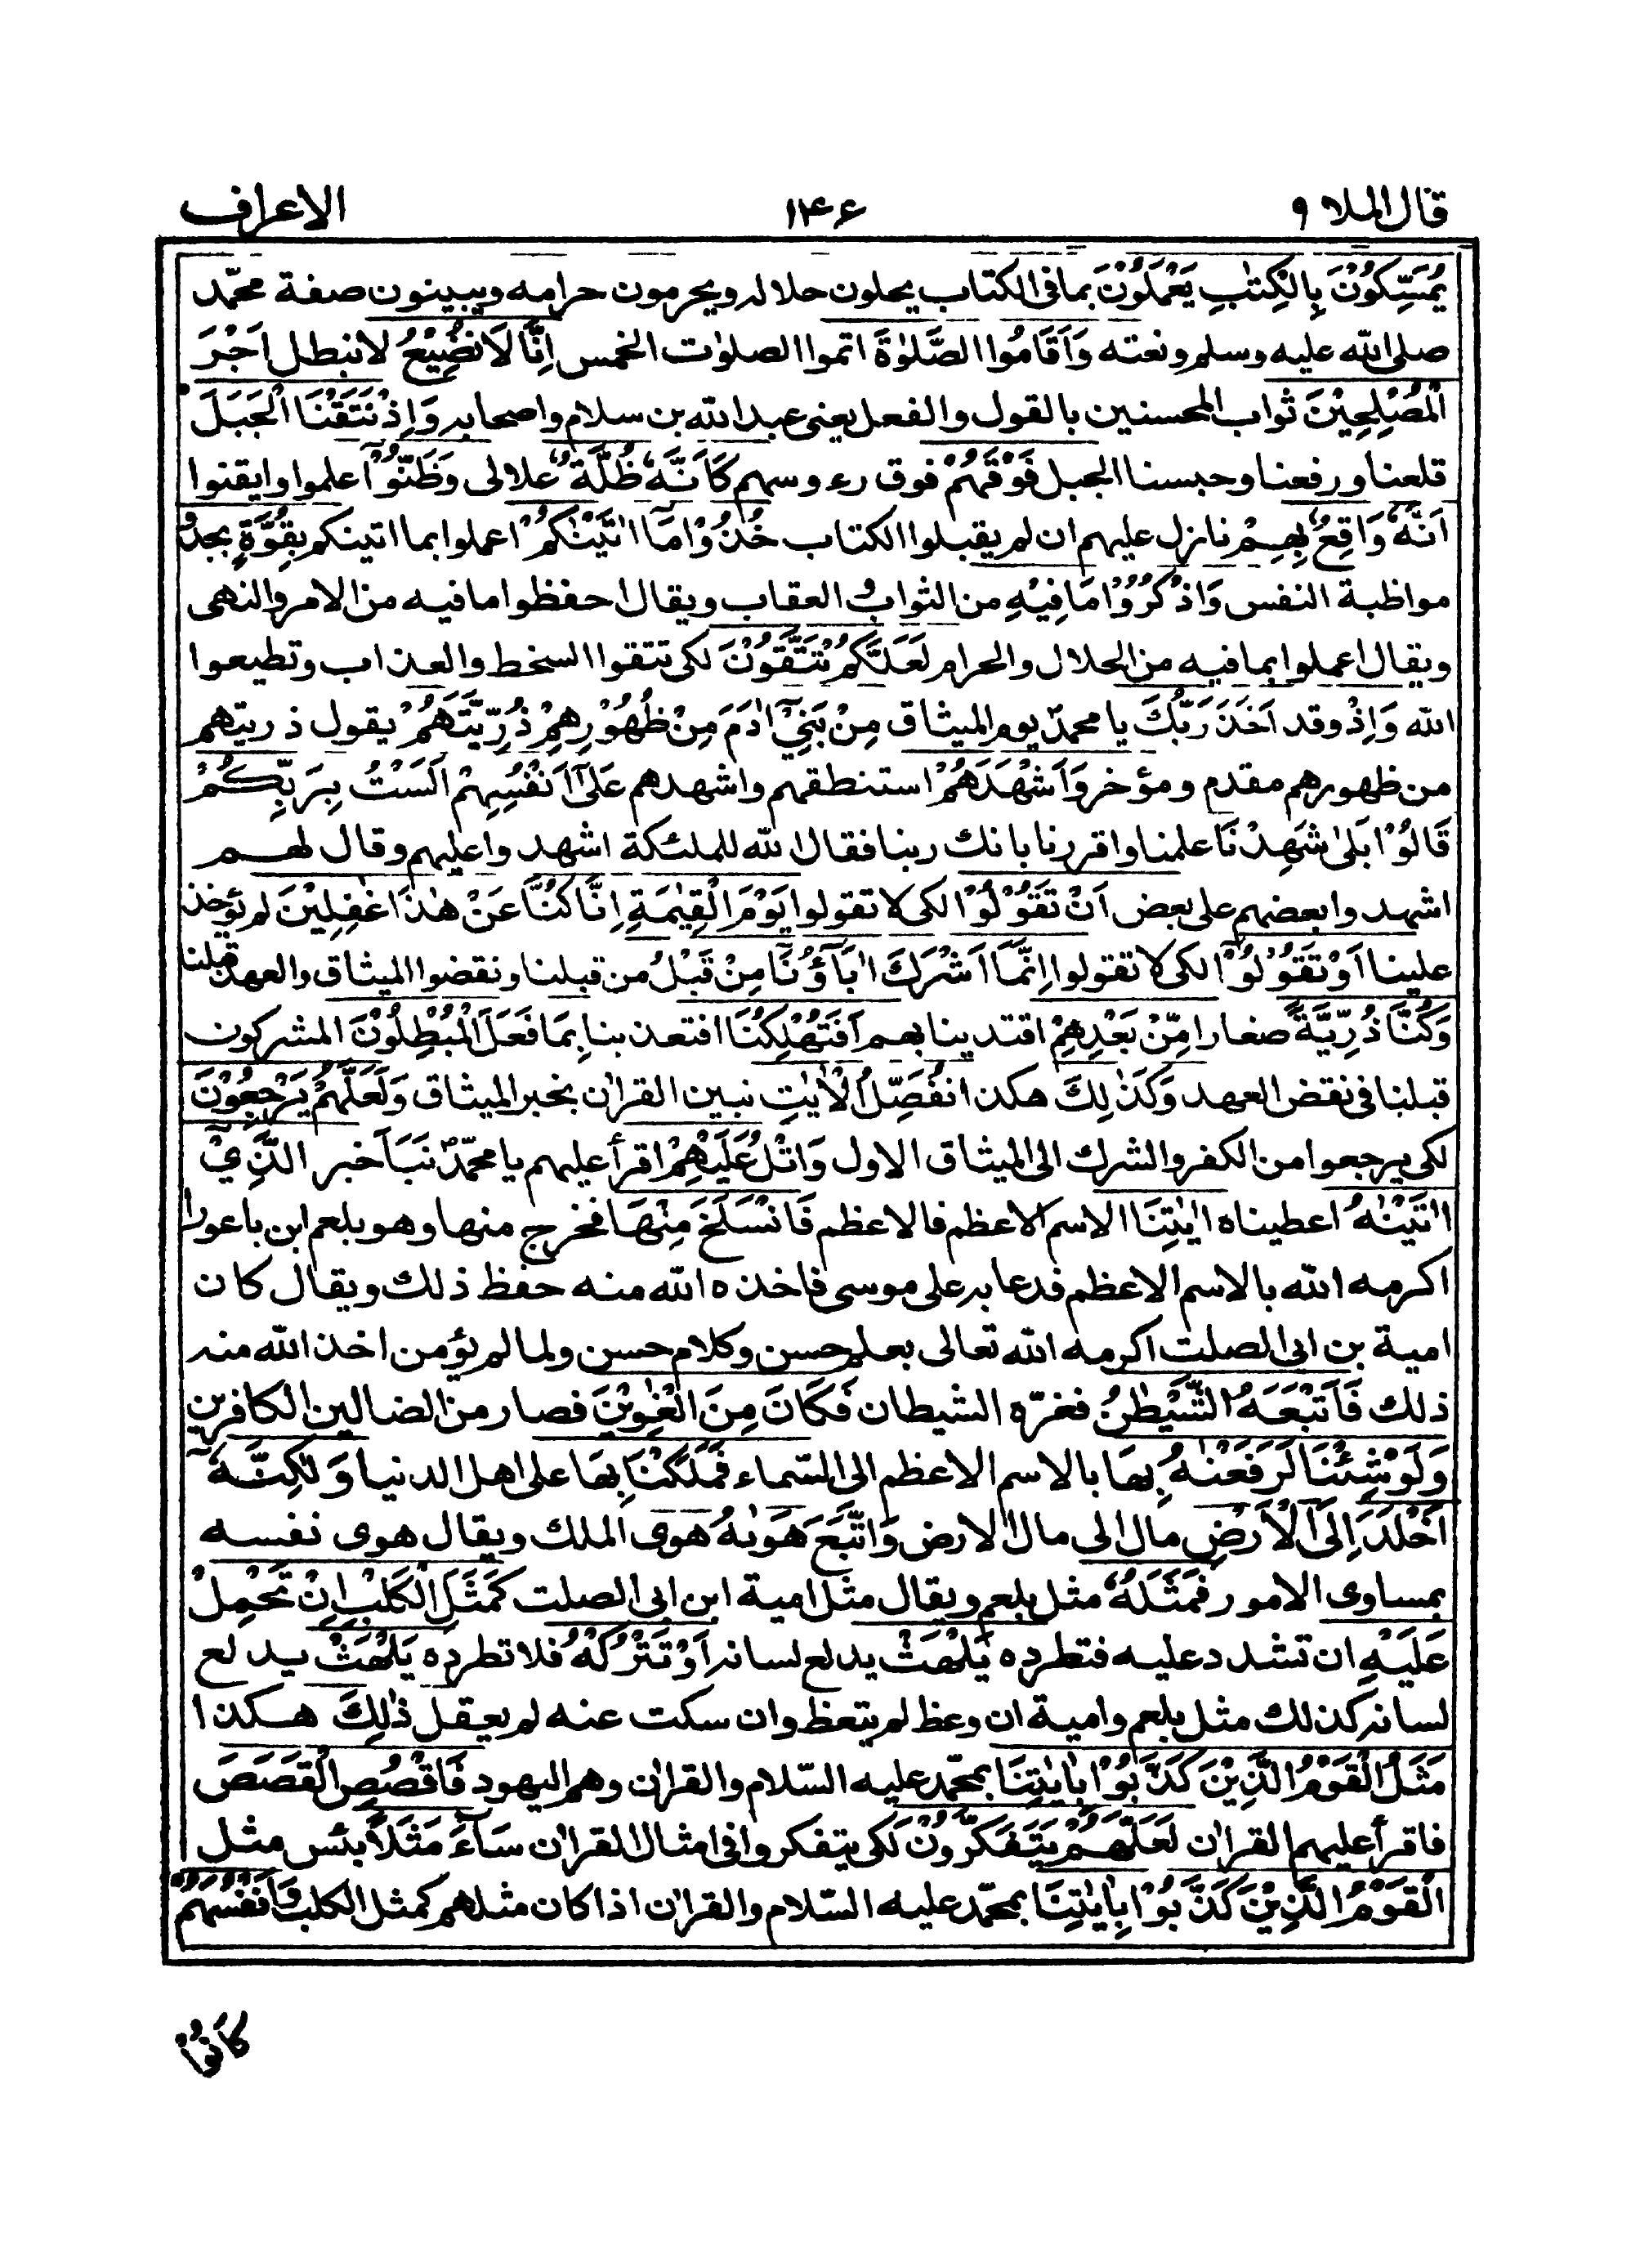 قال الملا ٩ ١٤٦ الاعراف
يُمَسِّكُوْنَ بِالْكِتٰبِ يَعْمَلُوْنَ بما فى الكتاب يحلون حلاله ويحرمون حرامه ويبينون صفة محمّد
صلى الله عليه وسلم ونعته وَاَقَامُوا الصَّلٰوةَ اتموا الصلوٰت الخمس اِنَّا لَا نُضِيْعُ لا نبطل اَجْرَ
الْمُصْلِحِيْنَ ثواب المحسنين بالقول والفعل يعنى عبد الله بن سلام واصحابه وَاِذْ نَتَقْنَا الْجَبَلَ
قلعنا ورفعنا وحبسنا الجبل فَوْقَهُمْ فوق رءوسهم كَاَنَّهٗ ظُلَّةٌ علالى وَظَنُّوْٓا علموا وايقنوا
اَنَّهٗ وَاقِعٌۢ بِهِمْ نازل عليهم ان لم يقبلوا الكتاب خُذُوْا مَآ اٰتَيْنٰكُمْ اعملوا بما اتينكم بِقُوَّةٍ بجد و
مواظبة النفس وَاذْكُرُوْا مَا فِيْهِ من الثواب و العقاب ويقال احفظوا ما فيه من الامر والنهى
ويقال اعملوا بما فيه من الحلال والحرام لَعَلَّكُمْ تَتَّقُوْنَ لكى تتقوا السخط والعذاب وتطيعوا
الله وَاِذْ وقد اَخَذَ رَبُّكَ يا محمدؐ يوم الميثاق مِنْۢ بَنِيْٓ اٰدَمَ مِنْ ظُهُوْرِهِمْ ذُرِّيَّتَهُمْ يقول ذريتهم
من ظهورهم مقدم ومؤخر وَاَشْهَدَهُمْ استنطقهم واشهدهم عَلٰٓى اَنْفُسِهِمْ اَلَسْتُ بِرَبِّكُمْ
قَالُوْا بَلٰى شَهِدْنَا علمنا واقررنا بانك ربنا فقال الله للملئكة اشهدوا عليهم وقال لهم
اشهدوا بعضهم على بعض اَنْ تَقُوْلُوْا لكى لا تقولوا يَوْمَ الْقِيٰمَةِ اِنَّا كُنَّا عَنْ هٰذَا غٰفِلِيْنَ لم يؤخذ
علينا اَوْ تَقُوْلُوْٓا لكى لا تقولوا اِنَّمَآ اَشْرَكَ اٰبَآؤُنَا مِنْ قَبْلُ من قبلنا ونقضوا الميثاق والعهد قبلنا
وَكُنَّا ذُرِّيَّةً صغارا مِّنْۢ بَعْدِهِمْ اقتدينا بهم اَفَتُهْلِكُنَا افتعذبنا بِمَا فَعَلَ الْمُبْطِلُوْنَ المشركون
قبلنا فى نقض العهد وَكَذٰلِكَ هكذا نُفَصِّلُ الْاٰيٰتِ نبين القراٰن بخبر الميثاق وَلَعَلَّهُمْ يَرْجِعُوْنَ
لكى يرجعوا من الكفر والشرك الى الميثاق الاول وَاتْلُ عَلَيْهِمْ اقرأ عليهم يا محمّدؐ نَبَاَ خبر الَّذِيْٓ
اٰتَيْنٰهُ اعطيناه اٰيٰتِنَا الاسم الاعظم فالاعظم فَانْسَلَخَ مِنْهَا فخرج منها وهو بلعم ابن باعورا
اكرمه الله بالاسم الاعظم فدعا به على موسى فاخذه الله منه حفظ ذلك ويقال كان
امية بن ابى الصلت اكرمه الله تعالى بعلم حسن وكلام حسن ولما لم يؤمن اخذ الله منه
ذلك فَاَتْبَعَهُ الشَّيْطٰنُ فغرّه الشيطان فَكَانَ مِنَ الْغٰوِيْنَ فصار من الضالين الكافرين
وَلَوْ شِئْنَا لَرَفَعْنٰهُ بِهَا بالاسم الاعظم الى السّماء فملكنا بِها على اهل الدنيا وَلٰكِنَّهٗٓ
اَخْلَدَ اِلَى الْاَرْضِ مال الى مال الارض وَاتَّبَعَ هَوٰىهُ هوى الملك ويقال هوى نفسه
بمساوى الامور فَمَثَلُهٗ مثل بلعم ويقال مثل امية ابن ابى الصلت كَمَثَلِ الْكَلْبِ اِنْ تَحْمِلْ
عَلَيْهِ ان تشدد عليه فتطرده يَلْهَثْ يدلع لسانه اَوْ تَتْرُكْهُ فلا تطرده يَلْهَثْ يدلع
لسانه كذلك مثل بلعم وامية ان وعظ لم يتعظ وان سكت عنه لم يعقل ذٰلِكَ هكذا
مَثَلُ الْقَوْمِ الَّذِيْنَ كَذَّبُوْا بِاٰيٰتِنَا بمحمّد عليه السّلام والقراٰن وهم اليهود فَاقْصُصِ الْقَصَصَ
فاقرأ عليهم القراٰن لَعَلَّهُمْ يَتَفَكَّرُوْنَ لكى يتفكروا فى امثال القراٰن سَآءَ مَثَلًا بئس مثل
الْقَوْمُ الَّذِيْنَ كَذَّبُوْا بِاٰيٰتِنَا بمحمّد عليه السّلام والقراٰن اذا كان مثلهم كمثل الكلب وَاَنْفُسَهُمْ
كَانُوْا